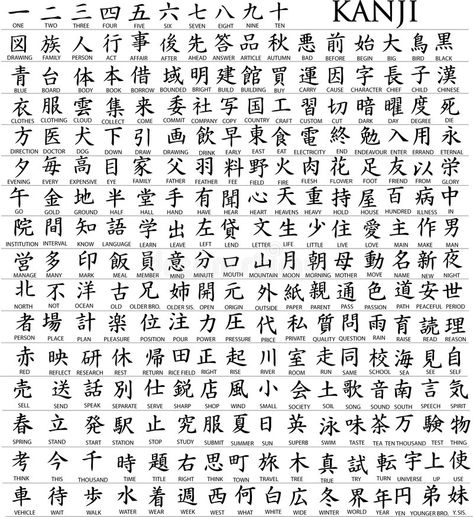 一 二 三 四 五 六 七 八 九 十 KANJI
ONE TWO THREE FOUR FIVE SIX SEVEN EIGHT NINE TEN
図 族 人 行 事 後 先 答 品 秋 悪 前 始 大 鳥 黒
DRAWING FAMILY PERSON ACT AFFAIR AFTER AHEAD ANSWER ARTICLE AUTUMN BAD BEFORE BEGIN BIG BIRD BLACK
青 台 体 本 借 域 明 建 館 買 運 因 字 長 子 漢
BLUE BOARD BODY BOOK BORROW BOUNDED BRIGHT BUILD BUILDING BUY CARRY CAUSE CHARACTER CHIEF CHILD CHINESE
衣 服 雲 集 来 委 社 写 国 工 習 切 暗 曜 度 死
CLOTHES CLOTHING CLOUD COLLECT COME COMMIT COMPANY COPY COUNTRY CRAFT CUSTOM CUT DARK DAY DEGREE DIE
方 医 犬 下 引 画 飲 早 東 食 電 終 勉 入 用 永
DIRECTION DOCTOR DOG DOWN DRAW DRAWING DRINK EARLY EAST EAT ELECTRICITY END ENDEAVOUR ENTER ERRAND ETERNAL
夕 毎 高 目 家 父 羽 料 野 火 肉 花 足 友 以 栄
EVENING EVERY EXPENSIVE EYE FAMILY FATHER FEATHER FEE FIELD FIRE FLESH FLOWER FOOT FRIEND FROM GLORY
午 金 地 半 堂 手 有 聞 心 天 重 持 屋 百 病 中
GO GOLD GROUND HALF HALL HAND HAVE HEAR HEART HEAVENS HEAVY HOLD HOUSE HUNDRED ILLNESS IN
院 間 知 語 学 出 左 貸 文 生 少 住 愛 主 作 男
INSTITUTION INTERVAL KNOW LANGUAGE LEARN LEAVE LEFT LEND LETTER LIFE LITTLE LIVE LOVE MAIN MAKE MAN
営 多 印 飯 員 意 分 口 山 月 朝 母 動 名 新 夜
MANAGE MANY MARK MEAL MEMBER MIND MINUTE MOUTH MOUNTAIN MOON MORNING MOTHER MOVE NAME NEW NIGHT
北 不 洋 古 兄 姉 開 元 外 紙 親 通 色 道 安 世
NORTH NOT OCEAN OLD OLDER BRO. OLDER SIS. OPEN ORIGIN OUTSIDE PAPER PARENT PASS PASSION PATH PEACEFUL PERIOD
者 場 計 楽 位 注 力 圧 代 私 質 問 雨 育 読 理
PERSON PLACE PLAN PLEASURE POSITION POUR POWER PRESSURE PRICE PRIVATE QUALITY QUESTION RAIN RAISE READ REASON
赤 映 研 休 帰 田 正 起 川 室 走 同 校 海 見 自
RED REFLECT RESEARCH REST RETURN RICE FIELD RIGHT RISE RIVER ROOM RUN SAME SCHOOL SEA SEE SELF
売 送 話 別 仕 鋭 店 風 小 会 土 歌 音 南 言 気
SELL SEND SPEAK SEPARATE SERVE SHARP SHOP WIND SMALL SOCIETY SOIL SONG SOUND SOUTH SPEECH SPIRIT
春 立 発 駅 止 究 服 夏 日 英 泳 味 茶 万 験 物
SPRING STAND START STATION STOP STUDY SUBMIT SUMMER SUN SUPERB SWIM TASTE TEA TEN THOUSAND TEST THING
考 今 千 時 題 右 思 町 旅 木 真 試 転 宇 上 使
THINK THIS THOUSAND TIME TITLE RIGHT THINK TOWN TRAVEL TREE TRUE TRY TURN UNIVERSE UP USE
車 待 歩 水 着 週 西 何 白 広 冬 界 年 円 弟 妹
VEHICLE WAIT WALK WATER WEAR WEEK WEST WHAT WHITE WIDE WINTER WORLD YEAR YEN YOUNGER BRO. Y.SIS.